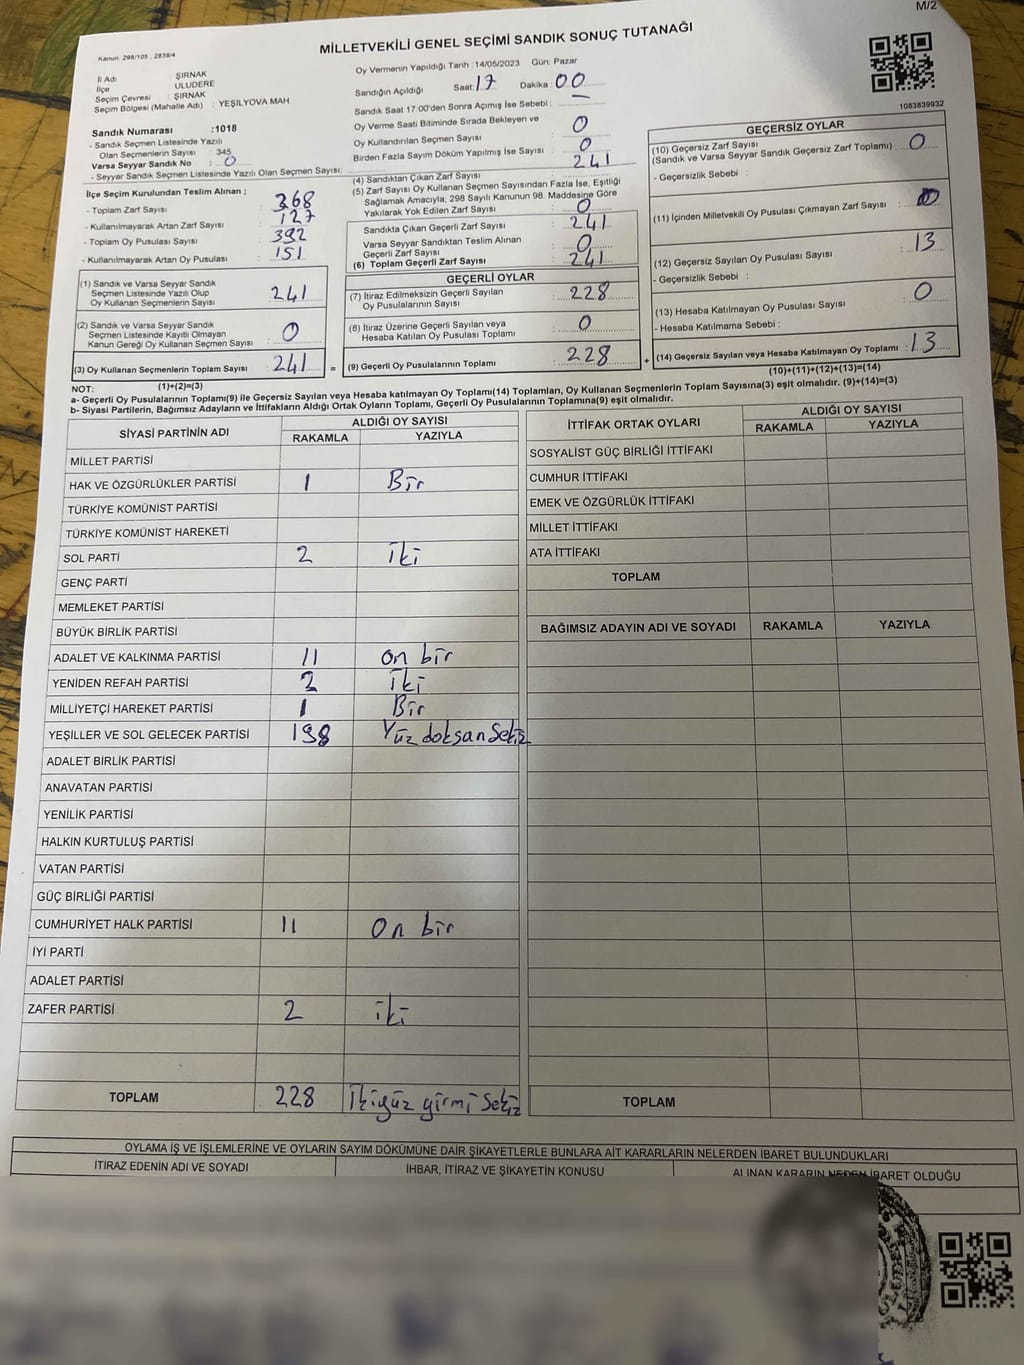 M/2
Kanun. 298/105 , 2839/4
MİLLETVEKİLİ GENEL SEÇİMİ SANDIK SONUÇ TUTANAĞI
1083839932
İl Adı : ŞIRNAK
İlçe : ULUDERE
Seçim Çevresi : ŞIRNAK
Seçim Bölgesi (Mahalle Adı) : YEŞİLYOVA MAH.
Sandık Numarası :1018
- Sandık Seçmen Listesinde Yazılı
Olan Seçmenlerin Sayısı : 345
Varsa Seyyar Sandık No : 0
- Seyyar Sandık Seçmen Listesinde Yazılı Olan Seçmen Sayısı:
İlçe Seçim Kurulundan Teslim Alınan ;
- Toplam Zarf Sayısı : 368
- Kullanılmayarak Artan Zarf Sayısı : 127
- Toplam Oy Pusulası Sayısı : 392
- Kullanılmayarak Artan Oy Pusulası : 151
(1) Sandık ve Varsa Seyyar Sandık
Seçmen Listesinde Yazılı Olup
Oy Kullanan Seçmenlerin Sayısı : 241
(2) Sandık ve Varsa Seyyar Sandık
Seçmen Listesinde Kayıtlı Olmayan
Kanun Gereği Oy Kullanan Seçmen Sayısı : 0
(3) Oy Kullanan Seçmenlerin Toplam Sayısı : 241 =
Oy Vermenin Yapıldığı Tarih :14/05/2023 Gün: Pazar
Sandığın Açıldığı Saat : 17 Dakika : 00
Sandık Saat 17:00'den Sonra Açımış İse Sebebi :
Oy Verme Saati Bitiminde Sırada Bekleyen ve
Oy Kullandırılan Seçmen Sayısı : 0
Birden Fazla Sayım Döküm Yapılmış İse Sayısı : 0
(4) Sandıktan Çıkan Zarf Sayısı : 241
(5) Zarf Sayısı Oy Kullanan Seçmen Sayısından Fazla İse, Eşitliği
Sağlamak Amacıyla, 298 Sayılı Kanunun 98. Maddesine Göre
Yakılarak Yok Edilen Zarf Sayısı : 0
Sandıkta Çıkan Geçerli Zarf Sayısı : 241
Varsa Seyyar Sandıktan Teslim Alınan
Geçerli Zarf Sayısı : 0
(6) Toplam Geçerli Zarf Sayısı : 241
GEÇERLİ OYLAR
(7) İtiraz Edilmeksizin Geçerli Sayılan
Oy Pusulalarının Sayısı : 228
(8) İtiraz Üzerine Geçerli Sayılan veya
Hesaba Katılan Oy Pusulası Toplamı : 0
(9) Geçerli Oy Pusulalarının Toplamı : 228 +
GEÇERSİZ OYLAR
(10) Geçersiz Zarf Sayısı
(Sandık ve Varsa Seyyar Sandık Geçersiz Zarf Toplamı) : 0
- Geçersizlik Sebebi :
(11) İçinden Milletvekili Oy Pusulası Çıkmayan Zarf Sayısı : 0
(12) Geçersiz Sayılan Oy Pusulası Sayısı : 13
- Geçersizlik Sebebi :
(13) Hesaba Katılmayan Oy Pusulası Sayısı : 0
- Hesaba Katılmama Sebebi :
(14) Geçersiz Sayılan veya Hesaba Katılmayan Oy Toplamı : 13
(10)+(11)+(12)+(13)=(14)
NOT: (1)+(2)=(3)
a- Geçerli Oy Pusulalarının Toplamı(9) ile Geçersiz Sayılan veya Hesaba katılmayan Oy Toplamı(14) Toplamları, Oy Kullanan Seçmenlerin Toplam Sayısına(3) eşit olmalıdır. (9)+(14)=(3)
b- Siyasi Partilerin, Bağımsız Adayların ve İttifakların Aldığı Ortak Oyların Toplamı, Geçerli Oy Pusulalarının Toplamına(9) eşit olmalıdır.
SİYASİ PARTİNİN ADI ALDIĞI OY SAYISI
RAKAMLA YAZIYLA
MİLLET PARTİSİ
HAK VE ÖZGÜRLÜKLER PARTİSİ 1 Bir
TÜRKİYE KOMÜNİST PARTİSİ
TÜRKİYE KOMÜNİST HAREKETİ
SOL PARTİ 2 iki
GENÇ PARTİ
MEMLEKET PARTİSİ
BÜYÜK BİRLİK PARTİSİ
ADALET VE KALKINMA PARTİSİ 11 on bir
YENİDEN REFAH PARTİSİ 2 iki
MİLLİYETÇİ HAREKET PARTİSİ 1 Bir
YEŞİLLER VE SOL GELECEK PARTİSİ 198 Yüz doksan Sekiz
ADALET BİRLİK PARTİSİ
ANAVATAN PARTİSİ
YENİLİK PARTİSİ
HALKIN KURTULUŞ PARTİSİ
VATAN PARTİSİ
GÜÇ BİRLİĞİ PARTİSİ
CUMHURİYET HALK PARTİSİ 11 On bir
İYİ PARTİ
ADALET PARTİSİ
ZAFER PARTİSİ 2 iki
TOPLAM 228 İkiyüz yirmi Sekiz
İTTİFAK ORTAK OYLARI ALDIĞI OY SAYISI
RAKAMLA YAZIYLA
SOSYALİST GÜÇ BİRLİĞİ İTTİFAKI
CUMHUR İTTİFAKI
EMEK VE ÖZGÜRLÜK İTTİFAKI
MİLLET İTTİFAKI
ATA İTTİFAKI
TOPLAM
BAĞIMSIZ ADAYIN ADI VE SOYADI RAKAMLA YAZIYLA
TOPLAM
OYLAMA İŞ VE İŞLEMLERİNE VE OYLARIN SAYIM DÖKÜMÜNE DAİR ŞİKAYETLERLE BUNLARA AİT KARARLARIN NELERDEN İBARET BULUNDUKLARI
İTİRAZ EDENİN ADI VE SOYADI İHBAR, İTİRAZ VE ŞİKAYETİN KONUSU ALINAN KARARIN NEDEN İBARET OLDUĞU